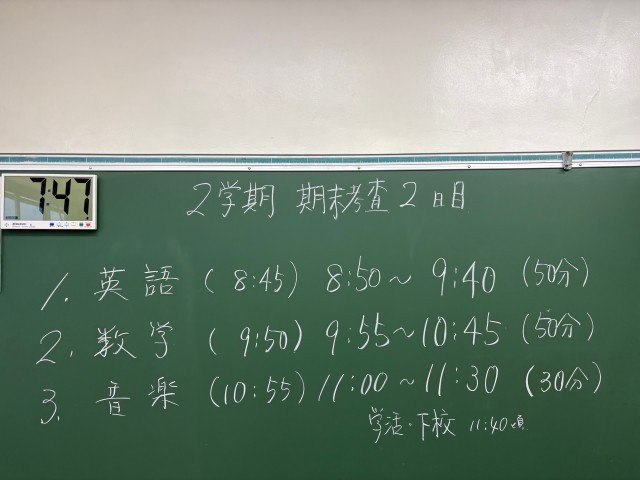 7:47
2学期 期末考査 2日目
1. 英語 (8:45) 8:50~9:40 (50分)
2. 数学 (9:50) 9:55~10:45 (50分)
3. 音楽 (10:55) 11:00~11:30 (30分)
学活・下校 11:40頃